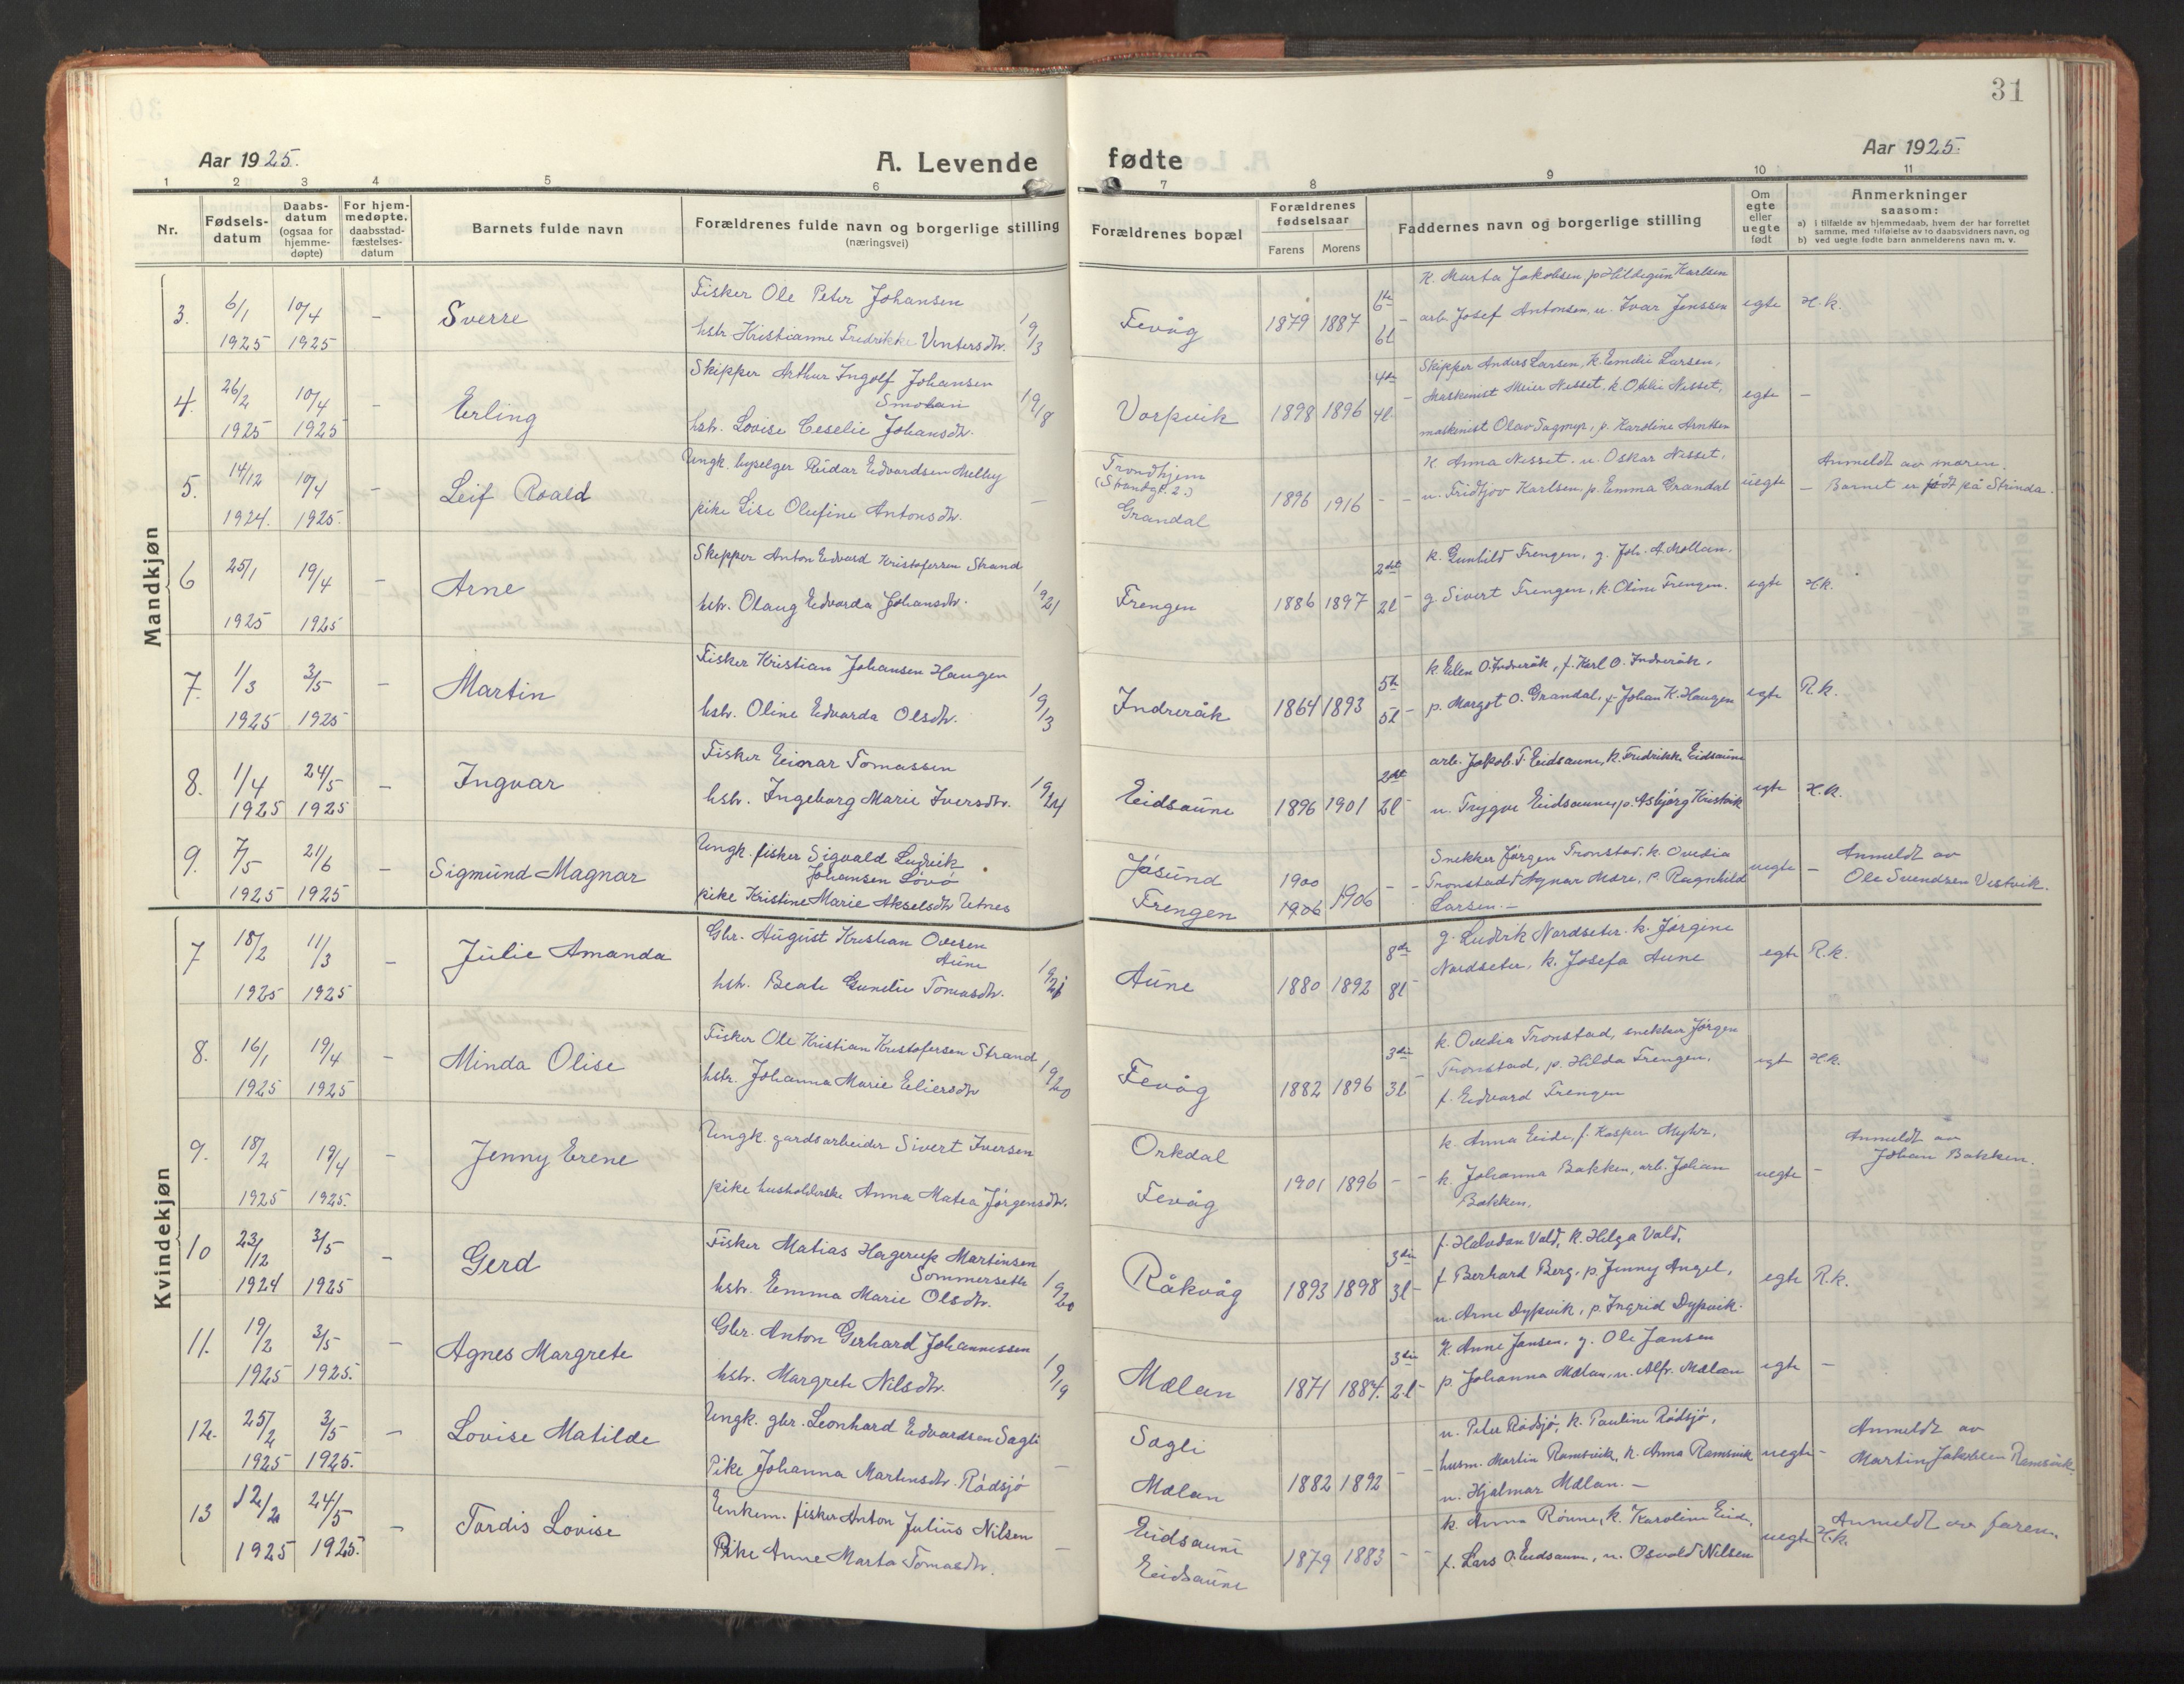 31
Aar 1925.
A. Levende fødte
Aar 1925.
1 2 3 4 5 6 7 8 9 10 11
Nr.
Fødsels-
datum
Daabs-
datum
(ogsaa for
hjemme-
døpte)
For hjem-
medøpte.
daabsstad-
fæstelses-
datum
Barnets fulde navn
Forældrenes fulde navn og borgerlige stilling
(næringsvei)
Forældrenes bopæl
Forældrenes
fødselsaar
Farens Morens
Faddernes navn og borgerlige stilling
Om
egte
eller
uegte
født
Anmerkninger
saasom:
a) i tilfælde av hjemmedaab, hvem der har forrettet
samme, med tilføielse av to daabsvidners navn, og
b) ved uegte fødte barn anmelderens navn m. v.
Mandkjøn
3. 6/1 1925 10/4 1925 - Sverre
Fisker Ole Peter Johansen
hstr. Kristianne Fredrikke Vintersdtr. 19/3
Fevåg 1879 1887 6te 6l -
K. Marta Jakobsen, p. Hildegun Karlsen
arb. Josef Antonsen, u. Ivar Jenssen
egte H.k.
4. 26/2 1925 10/4 1925 - Erling
Skipper Arthur Ingolf Johansen
Smolan
hstr. Lovise Ceselie Johansdtr. 19/18
Vorpvik 1898 1896 4de 4l -
Skipper Anders Larsen, k. Emelie Larsen,
Maskinist Meier Nesset, k. Otelie Nesset,
maskinist Olav Sagmyr, p. Karoline Arntsen
egte -
5. 14/12 1924. 10/4 1925. - Leif Roald
Ungk. byselger Reidar Edvardsen Melby
pike Lise Olufine Antonsdtr. -
Trondhjem
(Strandgt. 2.)
Grandal
1896 1916 - -
K. Anna Nesset. u. Oskar Nesset,
u. Fridtjov Karlsen, p. Emma Grandal
uegte -
Anmeldt av moren.
Barnet er født på Strinda.
6 25/1 1925 19/4 1925 - Arne
Skipper Anton Edvard Kristofersen Strand
hstr. Olaug Edvarda Johansdtr. 19/21
Frengen 1886 1897 2det 2l -
k. Gunhild Frengen, g. Joh. A. Mollan.
g. Sivert Frengen, k. Oline Frengen.
egte H.k.
7. 1/3 1925 3/5 1925 - Martin
Fisker Kristian Johansen Haugen
hstr. Oline Edvarda Olsdtr. 19/13
Indreråk 1864 1893 5te 5l -
k. Ellen O. Indreråk, f. Karl O. Indreråk,
p. Margot O. Grandal, f. Johan K. Haugen
egte R.k.
8. 1/4 1925 24/5 1925 - Ingvar
Fisker Einar Tomassen
hstr. Ingeborg Marie Iversdtr. 19/24
Eidsaune 1896 1901 2det 2l -
arb. Jakob T. Eidsaune, k. Fredrikke Eidsaune
u. Trygve Eidsaune, p. Asbjørg Kristvik
egte H.k.
9. 7/5 1925 21/6 1925 - Sigmund Magnar
Ungk. fisker Sigvald Ludvik
Johansen Løvø
pike Kristine Marie Akselsdtr. Utnes
Jøsund
Frengen
1900
1906 1906 - -
Snekker Jørgen Tronstad, k. Ovedia
Tronstad, f. Agnar Møre, p. Ragnhild
Larsen. -
uegte -
Anmeldt av
Ole Svendsen Vestvik.
Kvindekjøn
7 18/2 1925 11/3 1925 - Julie Amanda
Gbr. August Kristian Ovesen
Aune
hstr. Beate Gunelie Tomasdtr. 19/21
Aune 1880 1892 8de 8l -
g. Ludvik Nordseter. k. Jørgine
Nordseter, k. Josefa Aune
egte R.k.
8. 16/1 1925 19/4 1925 - Minda Olise
Fisker Ole Kristian Kristofersen Strand
hstr. Johanna Marie Eeliersdtr 19/20
Fevåg 1882 1896 3die 3l -
k. Ovedia Tronstad, snekker Jørgen
Tronstad, p. Hilda Frengen,
f. Edvard Frengen
egt H.k.
9. 18/2 1925 19/4 1925. - Jenny Erene
Ungk. gardsarbeider Sivert Iversen
pike husholderske Anna Matea Jørgensdtr.
Orkdal
Fevåg
1901 1896 - -
k. Anna Eide, f. Kasper Myhr,
k. Johanna Bakken, arb. Johan
Bakken.
uegte -
Anmeldt av
Johan Bakken.
10 23/12 1924 3/5 1925 - Gerd
Fisker Matias Hagerup Martinsen
Sommersette
hstr. Emma Marie Olsdtr. 19/20
Råkvåg 1893 1898 3die 3l -
f. Halvdan Vold, k. Helga Vold,
f Berhard Berg, p. Jenny Angel,
u. Arne Dypvik, p. Ingrid Dypvik.
egte R.k.
11. 19/2 1925 3/5 1925. - Agnes Margrete
Gbr. Anton Gerhard Johannessen
hstr. Margrete Nilsdtr. 19/9
Mælan 1871 1884. 3die 2.l -
K. Anne Jansen, g. Ole Jansen
p. Johanna Mælan, u. Alfr. Mælan
egte -
12. 25/2 1925 3/5 1925. - Lovise Matilde
Ungk. gbr. Leonhard Edvardsen Sagli
Pike Johanna Martinsdtr. Rødsjø -
Sagli
Mælan
1882 1892 - -
u. Peter Rødsjø, k. Pauline Rødsjø,
husm. Martin Ramsvik, k. Anna Ramsvik
u. Hjalmar Mælan. -
uegte -
Anmeldt av
Martin Jakobsen Ramsvik.
13 12/2 1925 24/5 1925. - Tordis Lovise
Enkem. fisker Anton Julius Nilsen
Pike Anne Marta Tomasdtr. -
Eidsaune
Eidsaune
1879 1883 - -
k. Anna Rønne, k. Karoline Eide,
f. Lars O. Eidsaune, u. Osvald Nilsen
uegte H.k.
Anmeldt av faren.